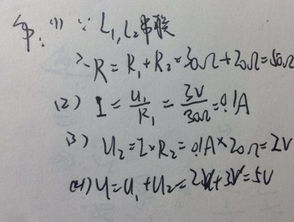 解:(1) ∵ L₁,L₂串联
∴R=R₁+R₂=30Ω+20Ω=50Ω
(2) I=U₁/R₁=3V/30Ω=0.1A
(3) U₂=I×R₂=0.1A×20Ω=2V
(4) U=U₁+U₂=2V+3V=5V